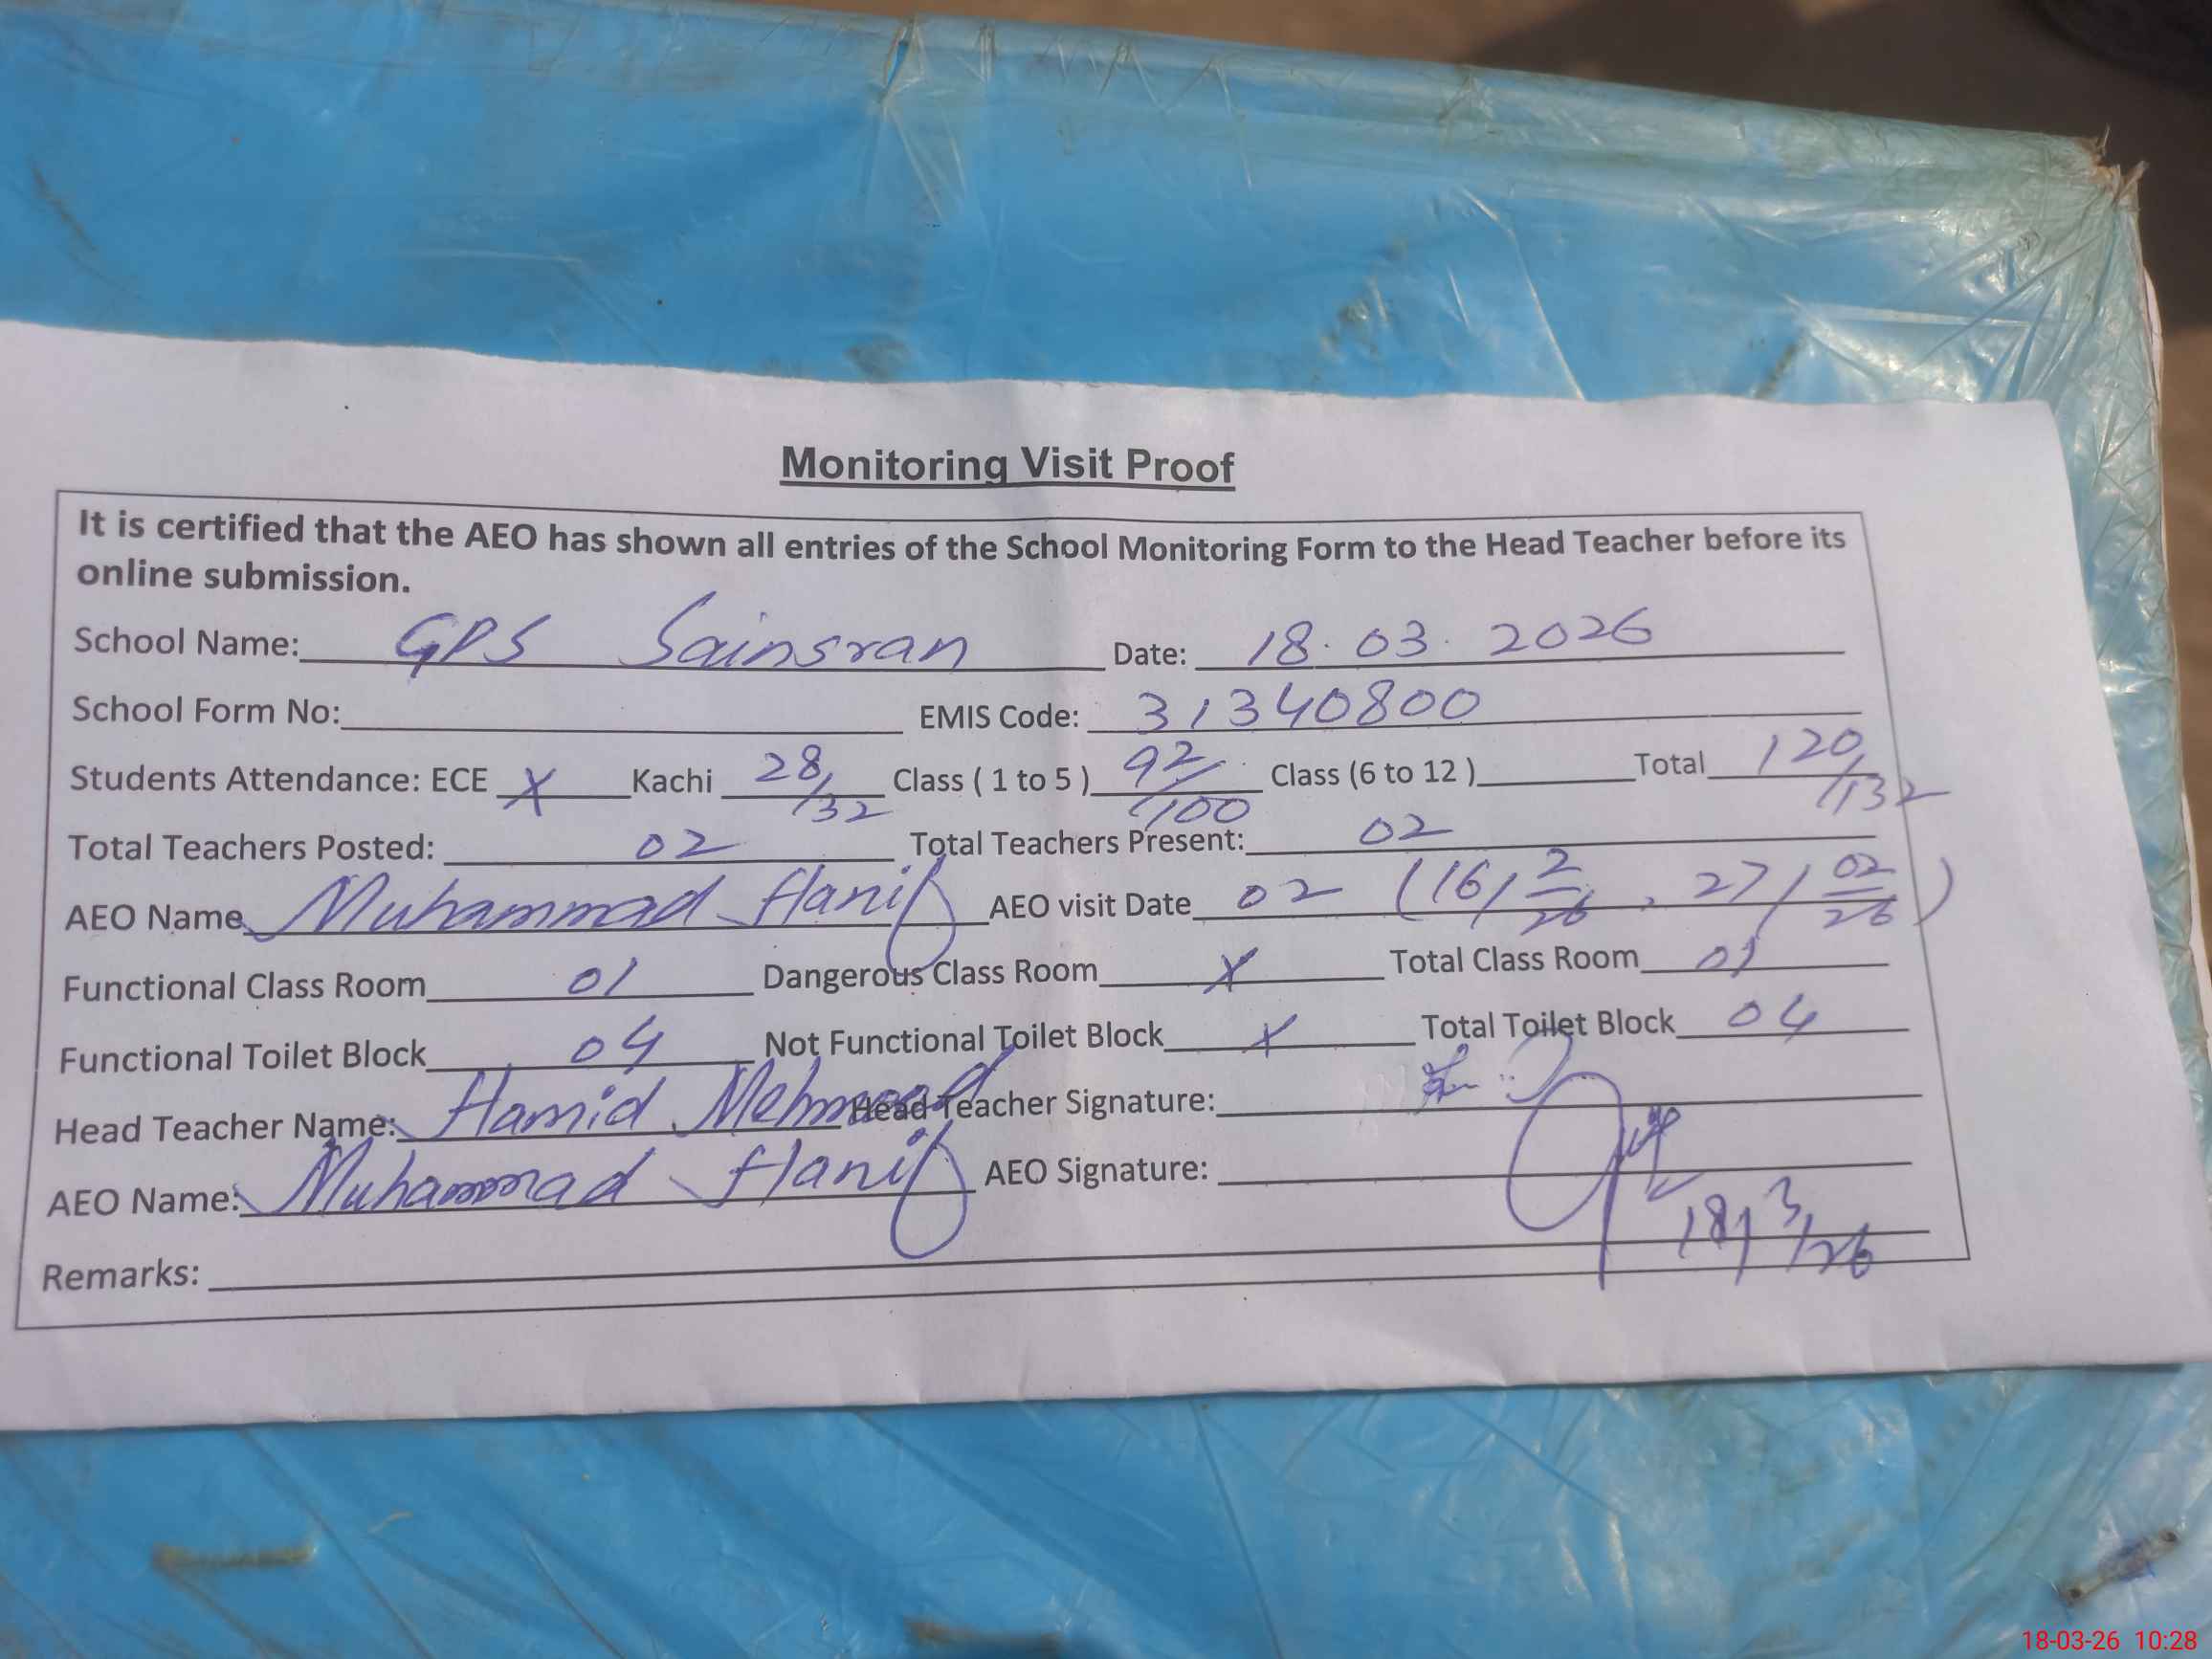 Monitoring Visit Proof
It is certified that the AEO has shown all entries of the School Monitoring Form to the Head Teacher before its
online submission.
School Name: GPS Sainsran Date: 18.03.2026
School Form No: EMIS Code: 31340800
Students Attendance: ECE X Kachi 28/32 Class ( 1 to 5 ) 92/100 Class (6 to 12 ) Total 120/132
Total Teachers Posted: 02 Total Teachers Present: 02
AEO Name Muhammad Hanif AEO visit Date 02 (16/2/26, 27/02/26)
Functional Class Room 01 Dangerous Class Room X Total Class Room 01
Functional Toilet Block 04 Not Functional Toilet Block X Total Toilet Block 04
Head Teacher Name: Hamid Mehmood Head Teacher Signature:
AEO Name: Muhammad Hanif AEO Signature:
18/3/26
Remarks:
18-03-26 10:28